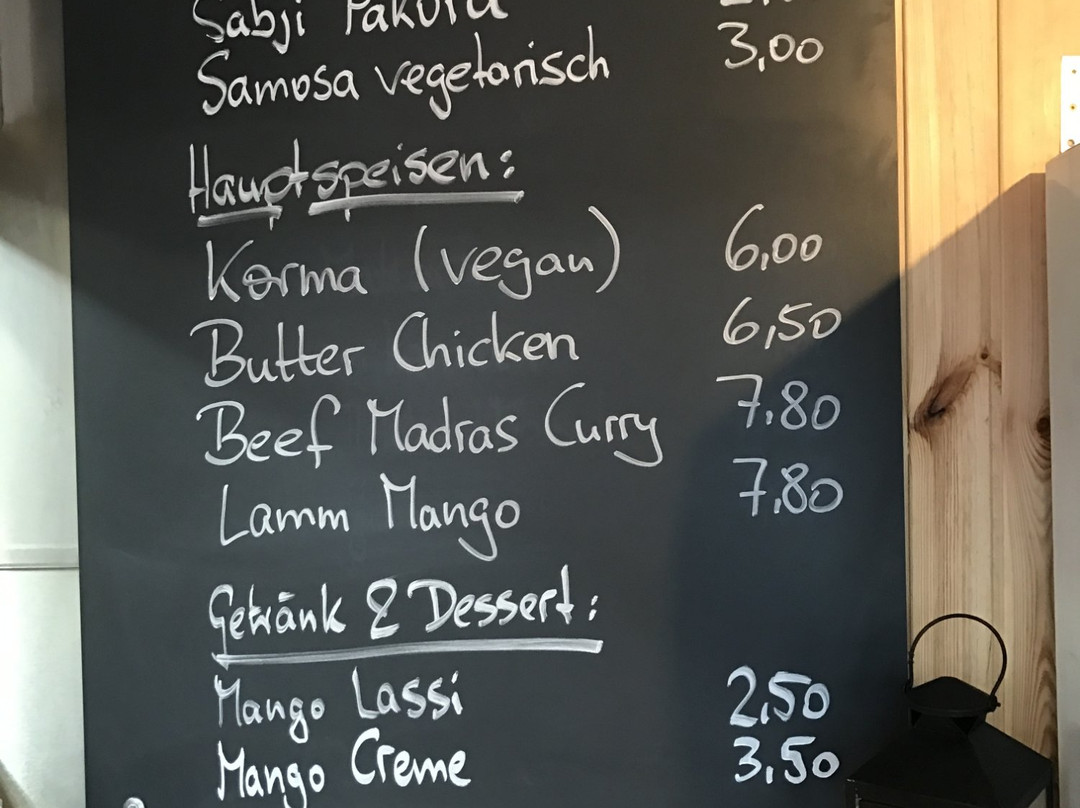 Sabji Pakora
Samosa vegetarisch 3,00
Hauptspeisen:
Korma (vegan) 6,00
Butter Chicken 6,50
Beef Madras Curry 7,80
Lamm Mango 7,80
Getränk & Dessert:
Mango Lassi 2,50
Mango Creme 3,50